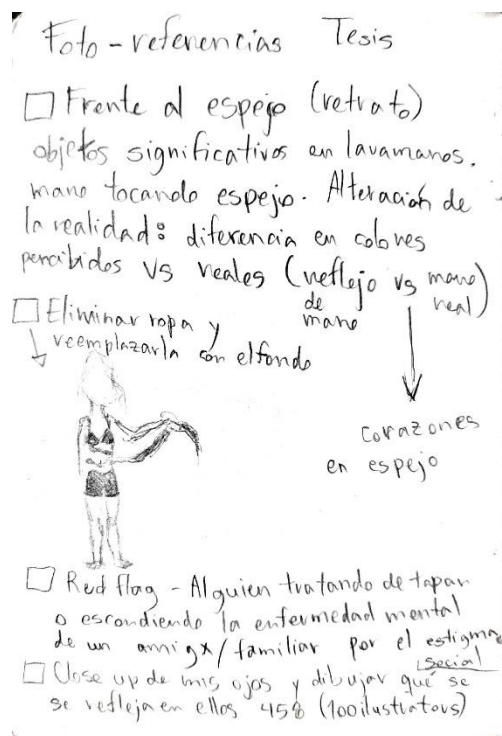 Foto-referencias Tesis
☐ Frente al espejo (retrato)
objetos significativos en lavamanos.
mano tocando espejo. Alteración de
la realidad: diferencia en colores
percibidos vs reales (reflejo vs mano
de mano real)
☐ Eliminar ropa y
reemplazarla con el fondo
corazones
en espejo
☐ Red flag - Alguien tratando de tapar
o escondiendo la enfermedad mental
de un amigx/familiar por el estigma
social
☐ Close up de mis ojos y dibujar qué se
se refleja en ellos 458 (100 ilustrators)